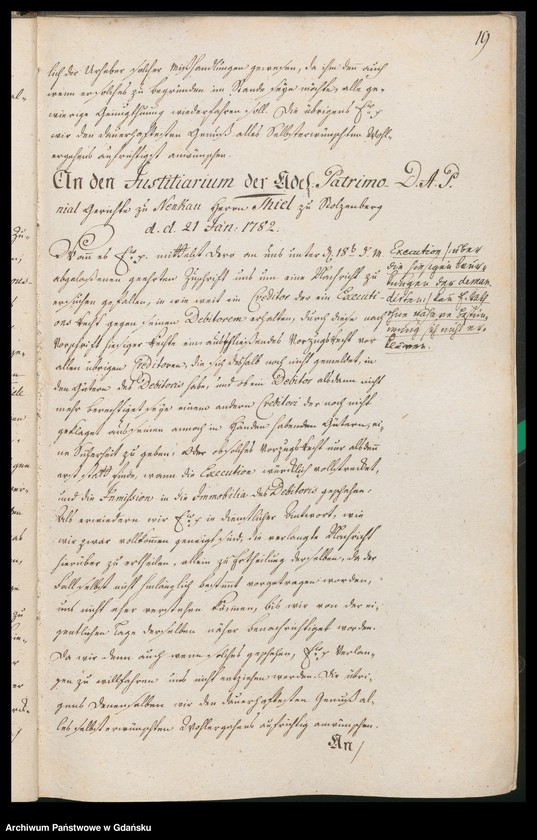 19
lich der Urheber solcher Mißhandlungen gewesen, da ihm denn auch
wenn er solches zu begründen im Stande seyn möchte, alle ge-
wierige Genugthuung wiederfahren soll. Die übrigens Ew. p
wir den dauerhaftesten Genuß alles Selbsterwünschten Wohl-
ergehens aufrichtigst anwünschen.
An den Justitiarium der Adel. Patrimo- D. A. P.
nial Gerichte zu Nenkau Herrn Thiel zu Stolzenberg
d. d. 21 Jan. 1782.
Wann es Ew. p. mittelst dero an uns unter d. 18t d. M.
abgelaßenen geehrten Zuschrift uns um eine Nachricht zu
ersuchen gefallen, in wie weit ein Creditor der ein Executi-
ons Recht gegen seinen Debitorem erhalten, durch diese nach
Vorschrift hiesiger Rechte ein ausschließendes Vorzugsrecht vor
allen übrigen Creditoren, die sich deshalb noch nicht gemeldet, in
den Gütern des Debitoris habe, und ob ein Debitor alsdann nicht
mehr berechtiget seye einem andern Creditori der noch nicht
geklaget aus seinen annoch in Händen habenden Gütern, ei-
ne Sicherheit zu geben, oder ob solches Vorzugsrecht nur alsdann
erst statt finde, wann die Execution würcklich vollstrecket,
und die Immission in die Immobilia des Debitoris geschehen.
Als erwiedern wir Ew. p in dienstlicher Antwort, wie
wir zwar vollkommen geneigt sind, die verlangte Nachricht
hierüber zu ertheilen, allein zu Ertheilung derselben, da der
Fall selbst nicht hinlänglich bestimmt vorgetragen worden,
uns nicht eher verstehen können, bis wir von der ei-
gentlichen Lage desselben näher benachrichtiget worden.
Da wir denn auch wenn solches geschehen, Ew. p Verlan-
gen zu willfahren uns nicht entziehen werden. Die übri-
gens Denenselben wir den dauerhaftesten Genuß al-
les selbst erwünschten Wohlergehens aufrichtig anwünschen.
An
Execution /: über
die hiesigen
der
kan E. Rath
ohne nähere
sich nicht er-
klären.
Archiwum Państwowe w Gdańsku